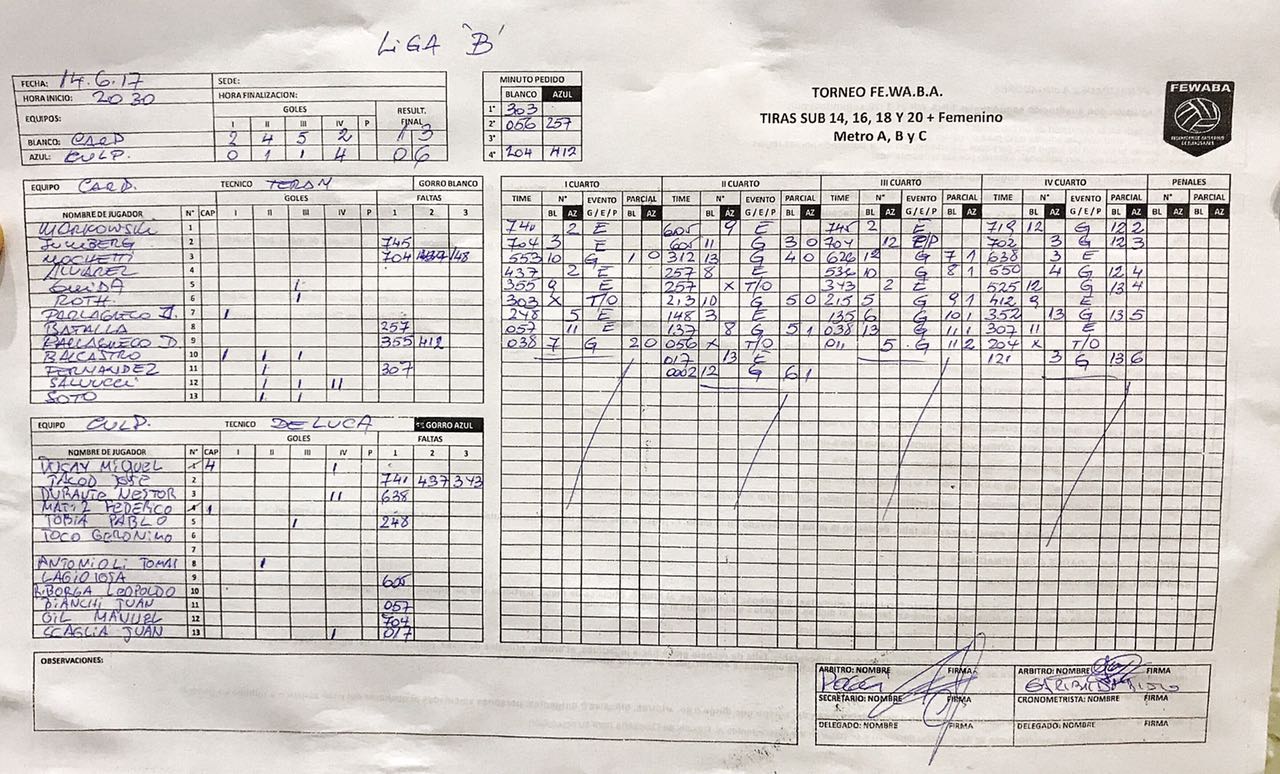 LIGA "B"
FECHA: 14.6.17 SEDE:
HORA INICIO: 20 30 HORA FINALIZACION:
EQUIPOS: GOLES RESULT. FINAL
I II III IV P
BLANCO: CARP 2 4 5 2 13
AZUL: CULP. 0 1 1 4 06
MINUTO PEDIDO
BLANCO AZUL
1° 303
2° 056 257
3°
4° 204 412
TORNEO FE.WA.B.A.
TIRAS SUB 14, 16, 18 Y 20 + Femenino
Metro A, B y C
FEWABA
EQUIPO CARP. TECNICO TERAN GORRO BLANCO
GOLES FALTAS
NOMBRE DE JUGADOR N° CAP I II III IV P 1 2 3
1
2 745
3 704
ALVAREZ 4
GUIDA 5 I
ROTH. 6 I
7 I
BATALLA 8 257
9 355 412
BALCASTRO 10 I I I
FERNANDEZ 11 I 307
SALVUCCI 12 I I II
SOTO 13 I I
I CUARTO II CUARTO III CUARTO IV CUARTO PENALES
TIME N° EVENTO PARCIAL TIME N° EVENTO PARCIAL TIME N° EVENTO PARCIAL TIME N° EVENTO PARCIAL
BL AZ G / E / P BL AZ BL AZ G / E / P BL AZ BL AZ G / E / P BL AZ BL AZ G / E / P BL AZ BL AZ BL AZ
741 2 E 605 9 E 745 2 E 719 12 G 12 2
704 3 E 605 11 G 3 0 704 12 702 3 G 12 3
553 10 G 1 0 312 13 G 4 0 626 12 G 7 1 638 3 E
437 2 E 257 8 E 536 10 G 8 1 550 4 G 12 4
355 9 E 257 x T/O 343 2 E 525 12 G 13 4
303 x T/O 213 10 G 5 0 215 5 G 9 1 412 9 E
248 5 E 148 3 E 135 6 G 10 1 352 13 G 13 5
057 11 E 137 8 G 5 1 038 13 G 11 1 307 11 E
038 7 G 2 0 056 x T/O 011 5 G 11 2 204 x T/O
017 13 E 121 3 G 13 6
0002 12 G 6 1
EQUIPO CULP. TECNICO DE LUCA GORRO AZUL
GOLES FALTAS
NOMBRE DE JUGADOR N° CAP I II III IV P 1 2 3
MIGUEL 4 I
JOSE 2 741 437 343
DURANTE NESTOR 3 II 638
FEDERICO 1
TOBIA PABLO 5 I 248
TOCO GERONIMO 6
7
ANTONIOLI TOMAS 8 I
LAGIOIOSA 9 605
LEOPOLDO 10
BIANCHI JUAN 11 057
GIL MANUEL 12 704
SCAGLIA JUAN 13 I 017
OBSERVACIONES:
ARBITRO: NOMBRE FIRMA ARBITRO: NOMBRE FIRMA
SECRETARIO: NOMBRE FIRMA CRONOMETRISTA: NOMBRE FIRMA
DELEGADO: NOMBRE FIRMA DELEGADO: NOMBRE FIRMA